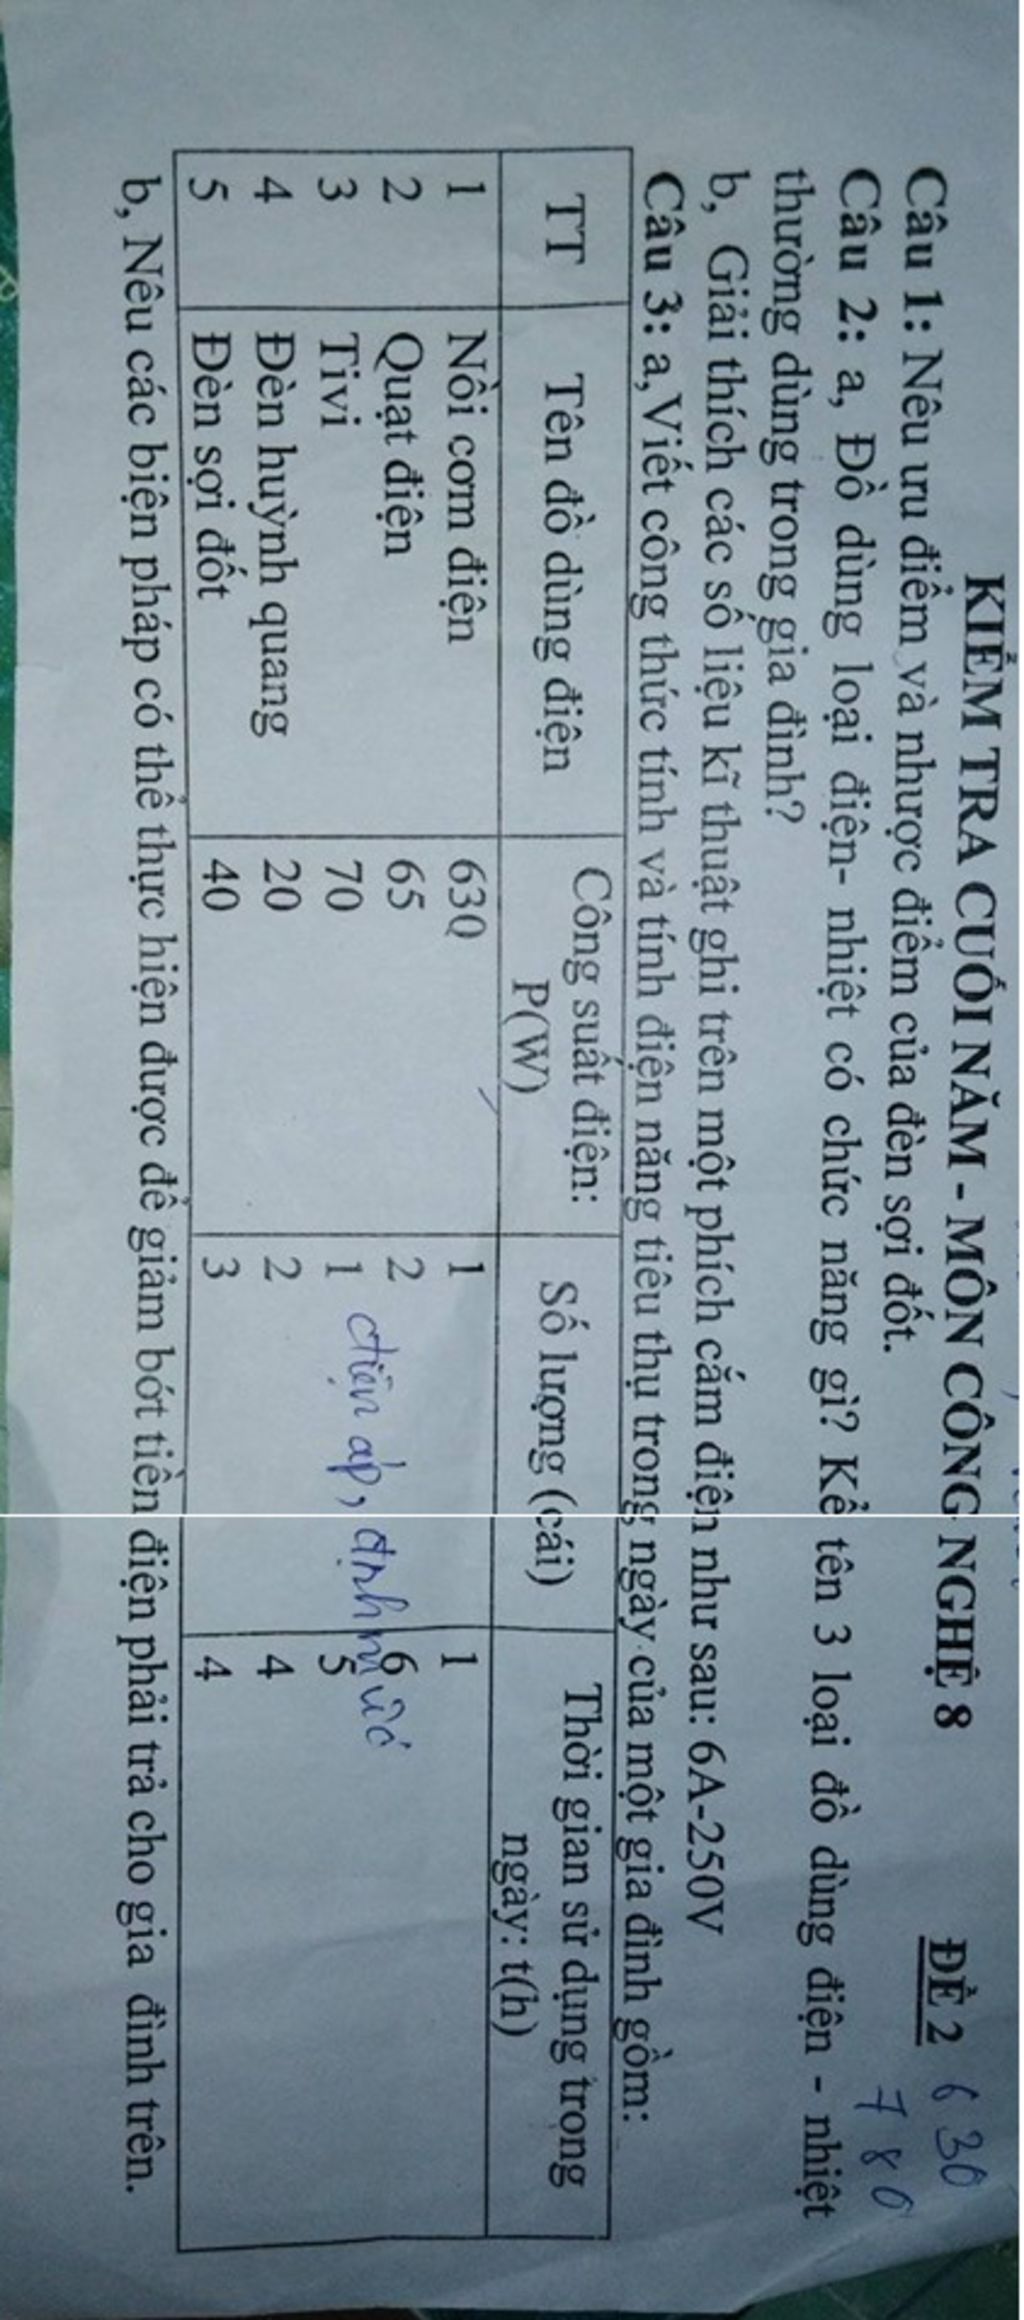 KIỂM TRA CUỐI NĂM - MÔN CÔNG NGHỆ 8 ĐỀ 2 630
780
Câu 1: Nêu ưu điểm và nhược điểm của đèn sợi đốt.
Câu 2: a, Đồ dùng loại điện- nhiệt có chức năng gì? Kể tên 3 loại đồ dùng điện - nhiệt
thường dùng trong gia đình?
b, Giải thích các số liệu kĩ thuật ghi trên một phích cắm điện như sau: 6A-250V
Câu 3: a, Viết công thức tính và tính điện năng tiêu thụ trong ngày của một gia đình gồm:
TT Tên đồ dùng điện Công suất điện: P(W) Số lượng (cái) Thời gian sử dụng trong ngày: t(h)
1 Nồi cơm điện 630 1 1
2 Quạt điện 65 2 6
điện áp, định mức
3 Tivi 70 1 5
4 Đèn huỳnh quang 20 2 4
5 Đèn sợi đốt 40 3 4
b, Nêu các biện pháp có thể thực hiện được để giảm bớt tiền điện phải trả cho gia đình trên.